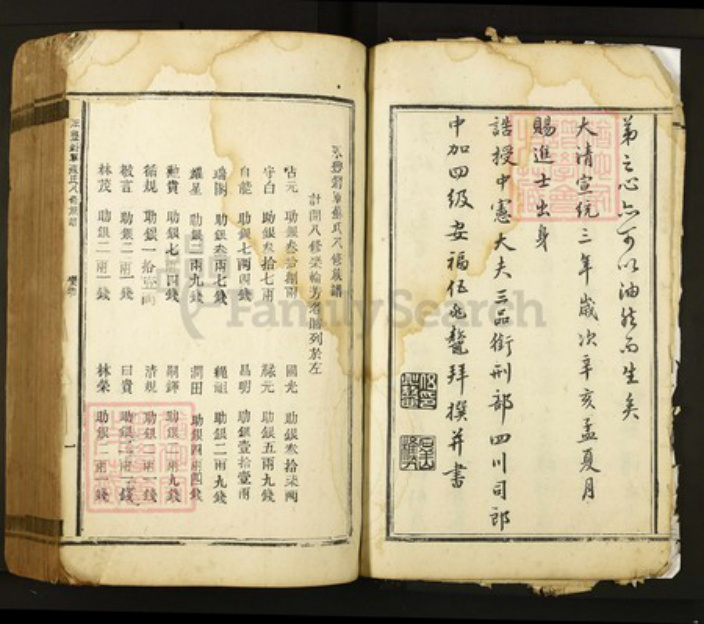 弟之心亦可以油然而生矣
大清宣統三年歲次辛亥孟夏月
賜進士出身
誥授中憲大夫三品銜刑部四川司郎
中加四級安福伍兆鰲拜撰并書
氏八修族譜
計開八修樂輸芳名臚列於左
占元 助銀叁拾捌兩 國光 助銀叁拾柒兩
守白 助銀叁拾七兩 祿元 助銀五兩九錢
自能 助銀七兩四錢 昌明 助銀壹拾壹兩
瑞閣 助銀叁兩七錢 繩祖 助銀二兩九錢
耀星 助銀二兩九錢 潤田 助銀四兩四錢
勳貴 助銀七兩四錢 嗣鐸 助銀二兩九錢
循規 助銀一拾 兩 清規 助銀二兩 錢
敬言 助銀二兩一錢 曰貴 助銀 兩 錢
林茂 助銀二兩一錢 林榮 助銀二兩一錢
氏八修族譜
一
FamilySearch